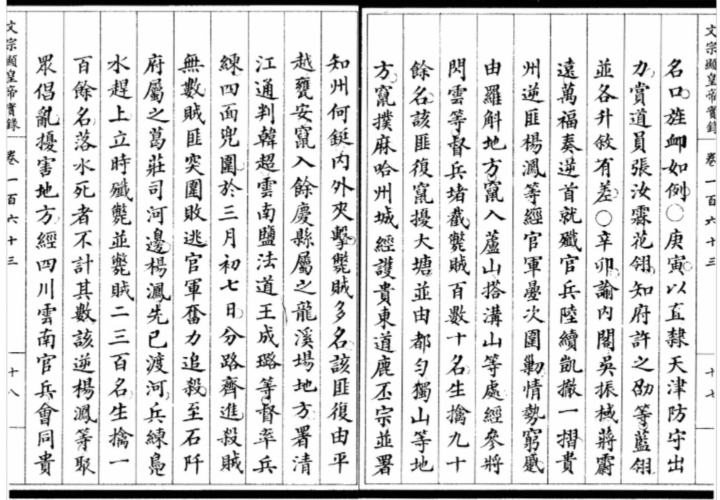 文宗顯皇帝實錄 卷一百六十三 十七
名口。旌卹如例。○庚寅。以直隸天津防守出
力。賞道員張汝霖花翎。知府許之劭等藍翎。
並各升敘有差。○辛卯。諭內閣。吳振棫蔣霨
遠萬福奏。逆首就殲。官兵陸續凱撤一摺。貴
州逆匪楊漋等。經官軍疊次圍勦。情勢窮蹙。
由羅斛地方竄入蘆山搭溝山等處。經參將
閃雲等督兵堵截。斃賊百數十名。生擒九十
餘名。該匪復竄擾大塘。並由都勻獨山等地
方。竄撲麻哈州城。經護貴東道鹿丕宗並署
知州何鋌內外夾擊。斃賊多名。該匪復由平
越甕安竄入餘慶縣屬之龍溪場地方。署清
江通判韓超。雲南鹽法道王成璐等督率兵
練四面兜圍。於三月初七日。分路齊進。殺賊
無數。賊匪突圍敗逃。官軍奮力追殺。至石阡
府屬之葛莊司河邊。楊漋先已渡河。兵練鳧
水趕上。立時殲斃。並斃賊二三百名。生擒一
百餘名。落水死者不計其數。該逆楊漋等聚
眾倡亂。擾害地方。經四川雲南官兵會同貴
文宗顯皇帝實錄 卷一百六十三 十八